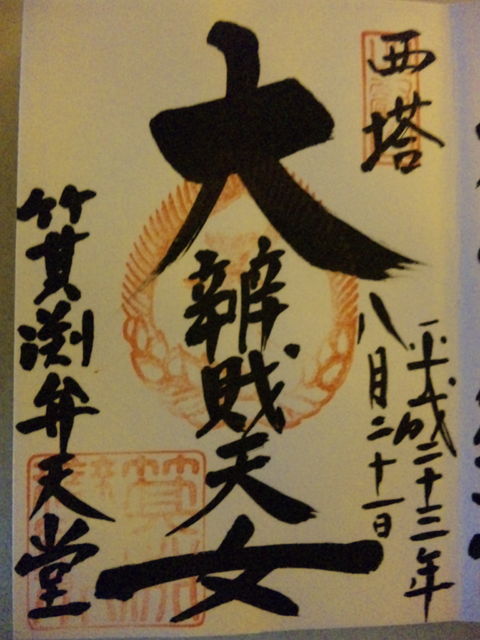 西塔
平成二十三年
八月二十一日
大辨財天女
箕淵弁天堂